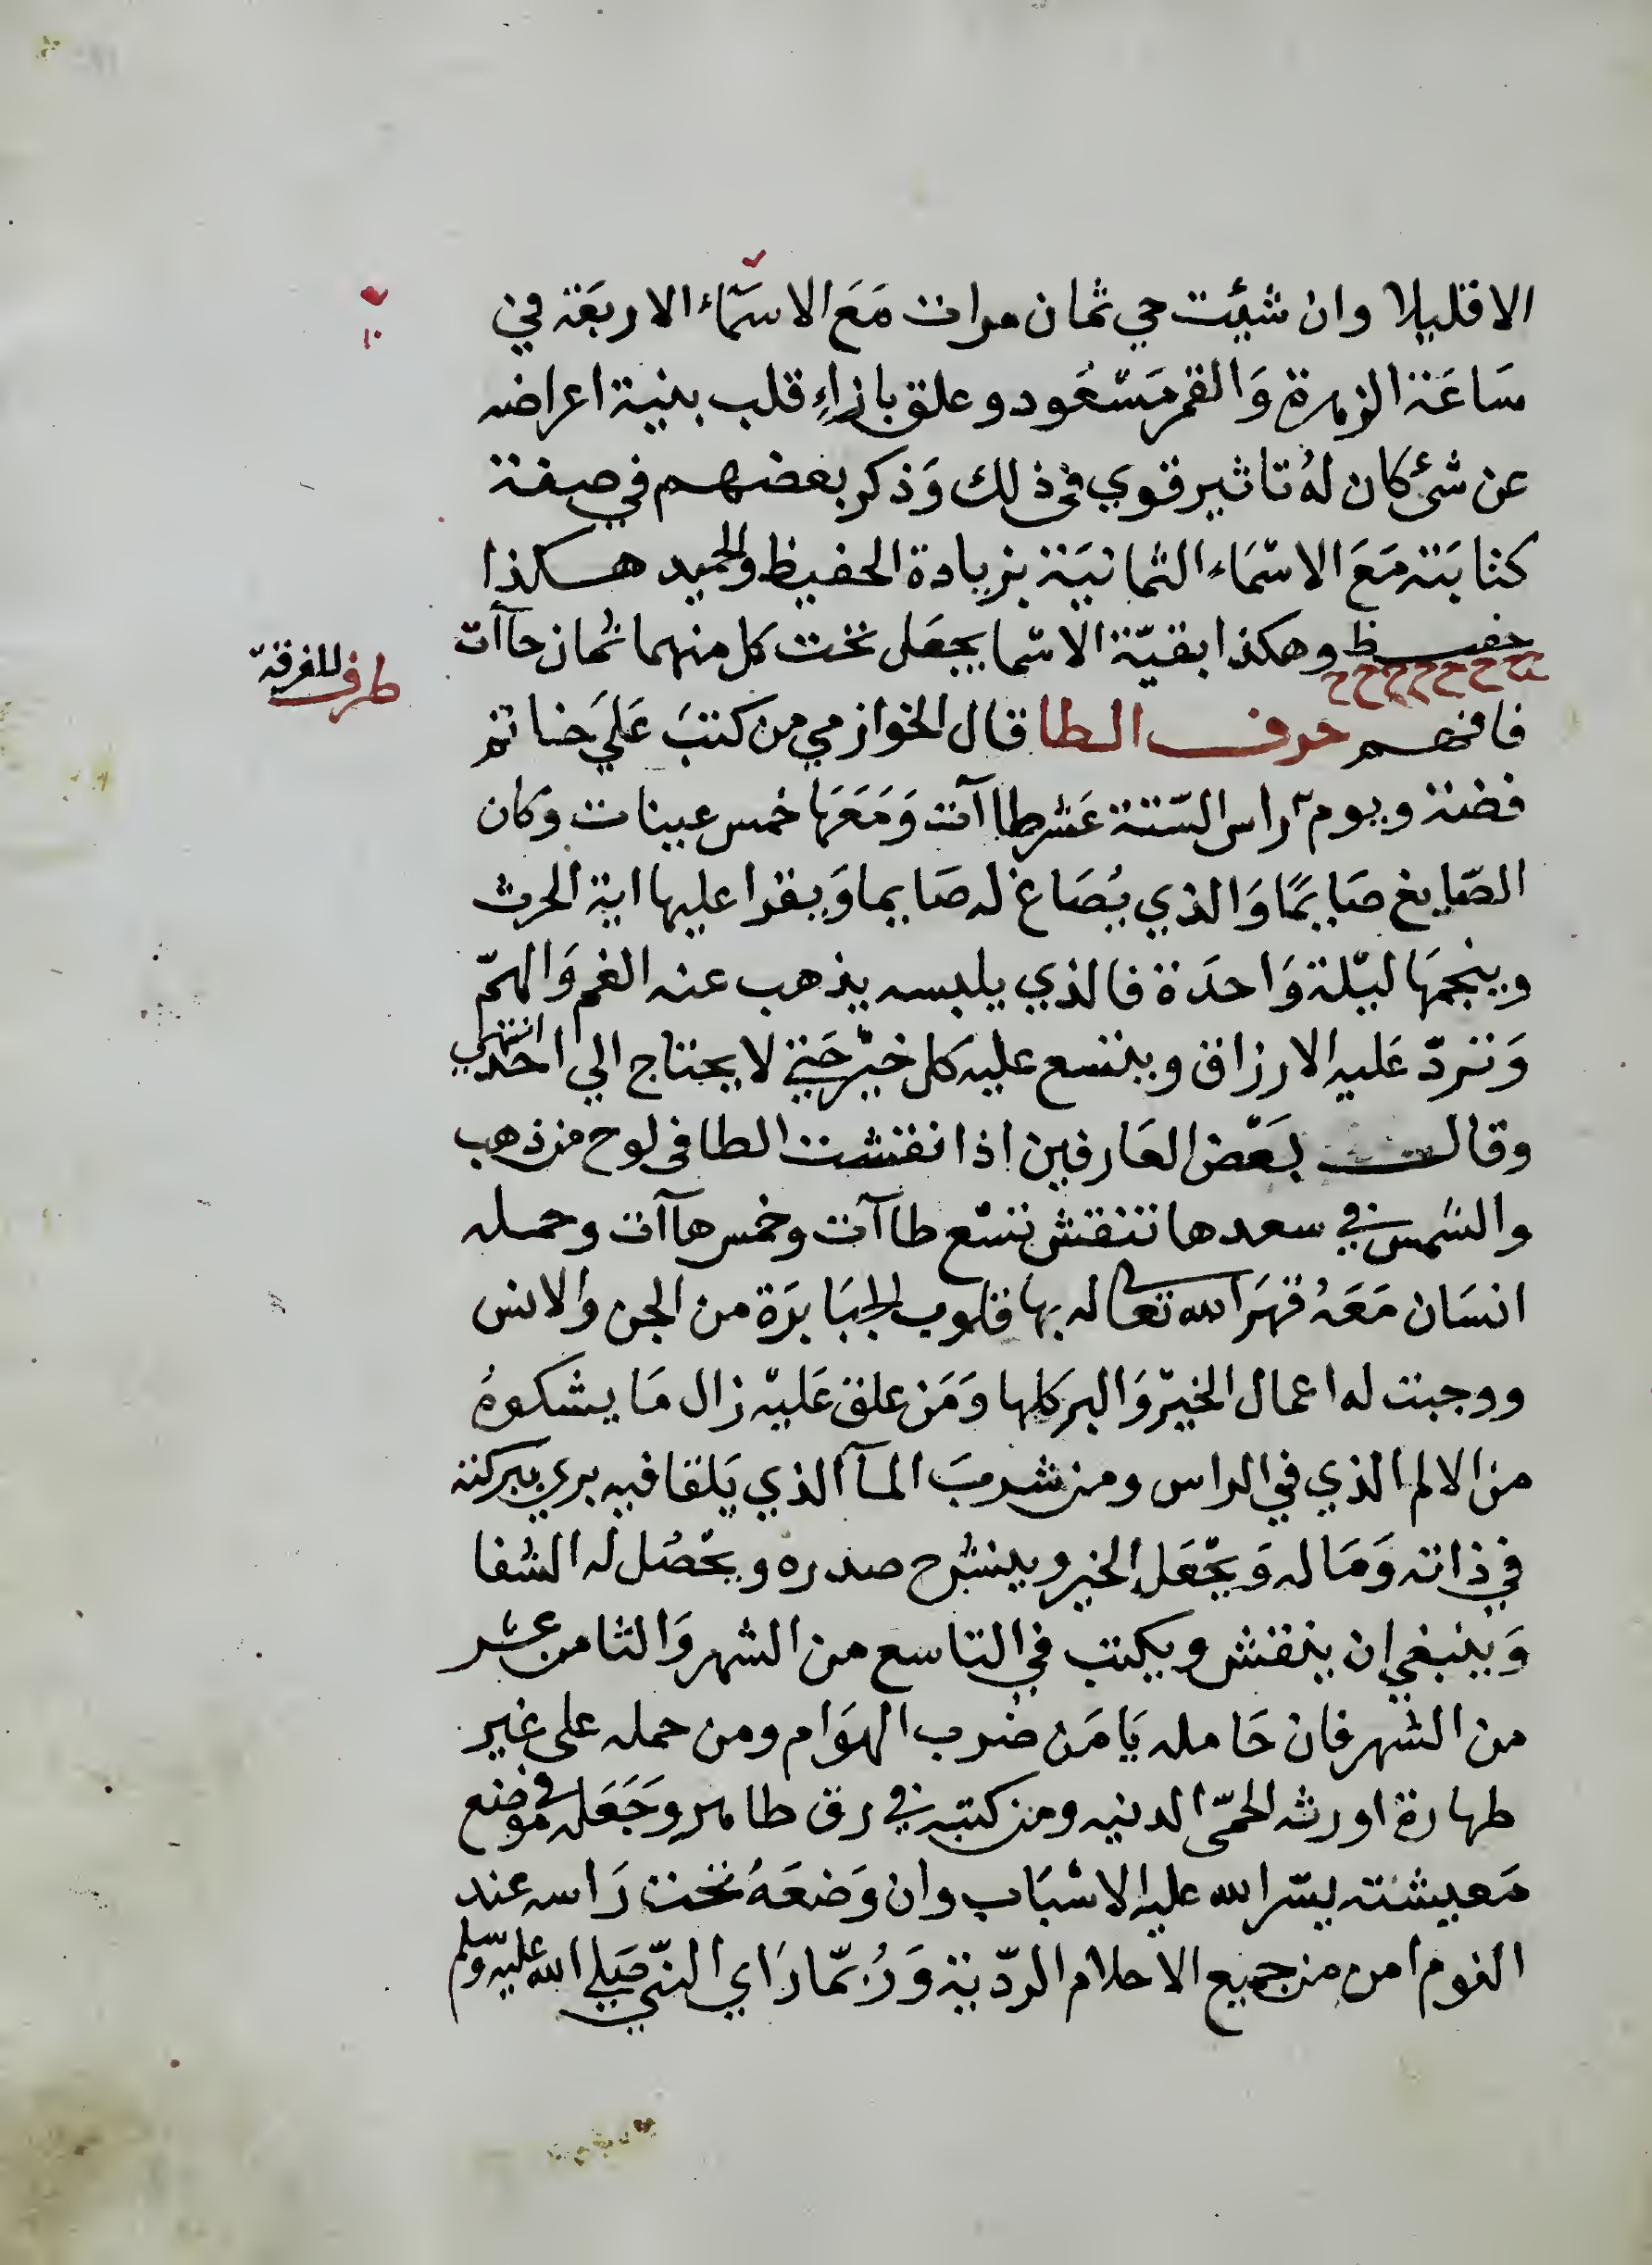 الاقليلا وان شئت حي ثمان مرات مَعَ الاسمآء الاربعَة في
سَاعَة الزهرة وَالقمر مَسْعُود وعلق بازاءِ قلب بنية اعراضه
عن شئ كان لهُ تاثير قوي في ذلك وَذكر بعضهم في صفة
كتابته مَعَ الاسْمَاء الثمانيَة بزيادة الحفيظ والحميد هكذا
حفيظ وهكذا بقيّة الاسما يجعَل تحت كل منهما ثمان حاآت
ح ح ح ح ح ح ح ح
طرف للغرقة
فافهم حرف الطا قال الخوازمي من كتبَ عَليَ خاتم
فضة ويوم راس السّنة عَشر طاآت وَمَعَهَا خمس عينات وكان
الصّايغ صَايمًا وَالذي يُصَاغ له صَايما وَيقرا عليها اية الحرث
وينجمهَا ليْلة وَاحدَة فالذي يلبسه يذهب عنه الغم وَالهمّ
وَتردّ عَليه الارزاق ويتسع عليه كل خيْر حَتي لا يحتاج الي احد انتهي
وقالت بَعْض العَارفين اذا نقشت الطا في لوح من ذهب
والشمس في سعدها تنقش تسْع طاآت وخمس هاآت وحمله
انسَان مَعَهُ قهَر الله تعالى له بها قلوب الجبَابرَة من الجن والانس
ووجبت له اعمال الخيْر وَالبر كلها وَمَن علق عَليْه زال مَا يشكوهُ
من الالم الذي في الراس ومن شربَ المآ الذي يَلقا فيه بري ببركته
في ذاته وَمَاله وَيجْعَل الخير وينشرح صدره ويحْصُل له الشفا
وَينبغي ان ينقش ويكتب في التاسع من الشهر وَالثامن عشر
من الشهر فان حَامله يَامَن ضرب الهوَام ومن حمله على غير
طهارة اورثه الحمّى الدنيه ومن كتبه في رق طاهر وَجَعَله في موضع
مَعيشته يسّر الله عليه الاسْبَاب وان وَضعَهُ تحت رَاسه عند
النوم امن من جميع الاحلام الردّية وَرُبمّا رَاي النبّي صَلي الله عليه وسلم